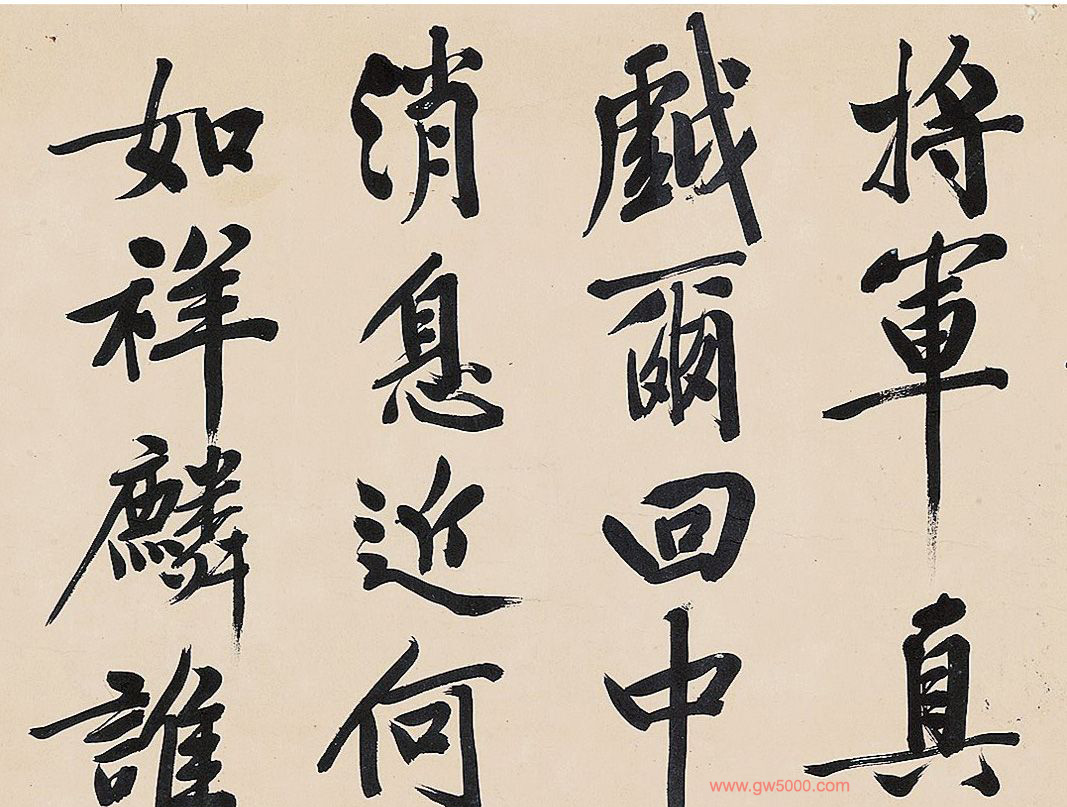 将軍真
戯爾回中
消息近何
如祥麟誰
www.gw5000.com